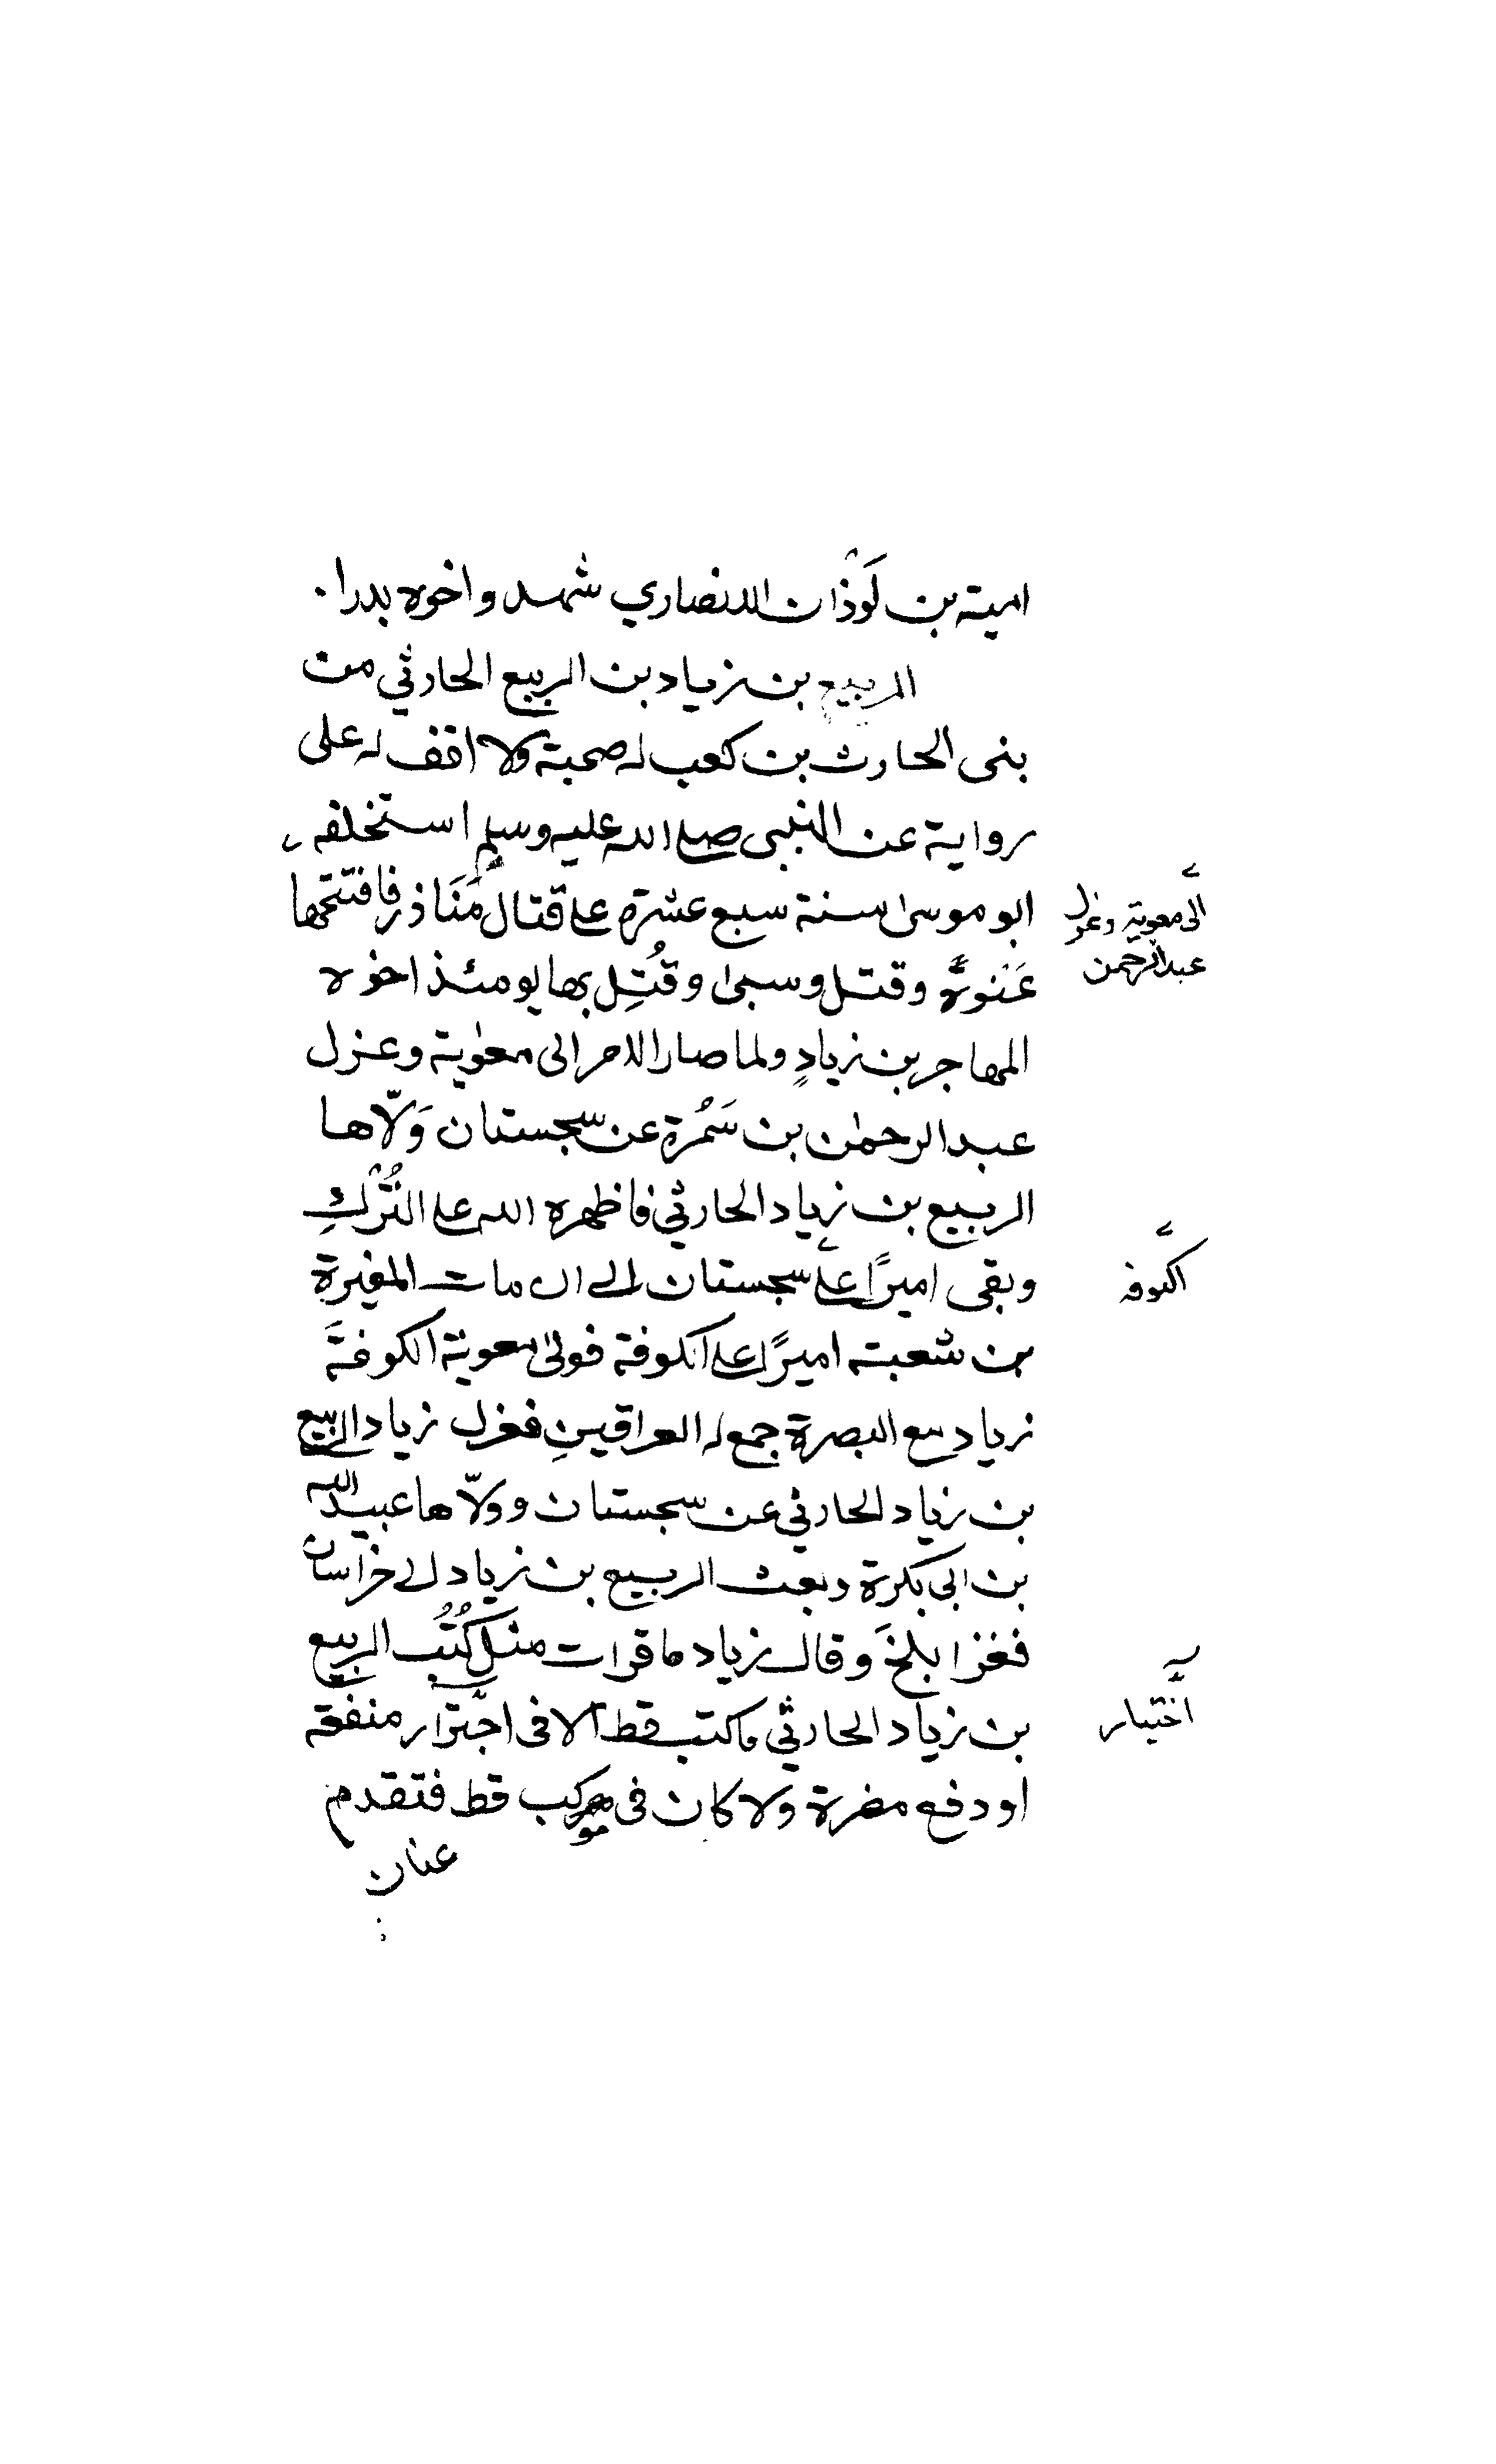 امية بن لَوْذان الانصاري شهد واخوه بدرا .
الربيع بن زياد بن الربيع الحارثي من
بنى الحارث بن كعب له صحبة ولا اقف له على
رواية عن النبى صلى الله عليه وسلم استخلفه
ابو موسى سنة سبع عشرة على قتال مَنَاذر فافتتحها
عَنْوةً وقتل وسبى وقُتِل بها يومئذ اخوه
المهاجر بن زيادٍ ولما صار الامر الى معوية وعزل
عبد الرحمن بن سَمُرة عن سجستان وَلّاها
الربيع بن زياد الحارثي فاظهره الله على التُرْكِ
وبقى اميرًا على سجستان الى ان مات المغيرة
بن شعبة اميرًا على الكوفة فولى معوية الكوفةَ
زياد مع البصرة جمع له العراقينِ فعزل زياد الربيع
بن زياد الحارثي عن سجستان وولّاها عبيد الله
بن ابى بكرة وبعث الربيع بن زياد الى خراسان
فغزا بلخَ وقال زياد ما قرات مثل كُتُب الربيع
بن زياد الحارثي ما كتب قط الا فى اجترار منفعة
او دفع مضرة ولا كان فى موكب قط فتقدم
عنان
الى معوية وعزل
عبد الرحمن
الكوفة
اختيار